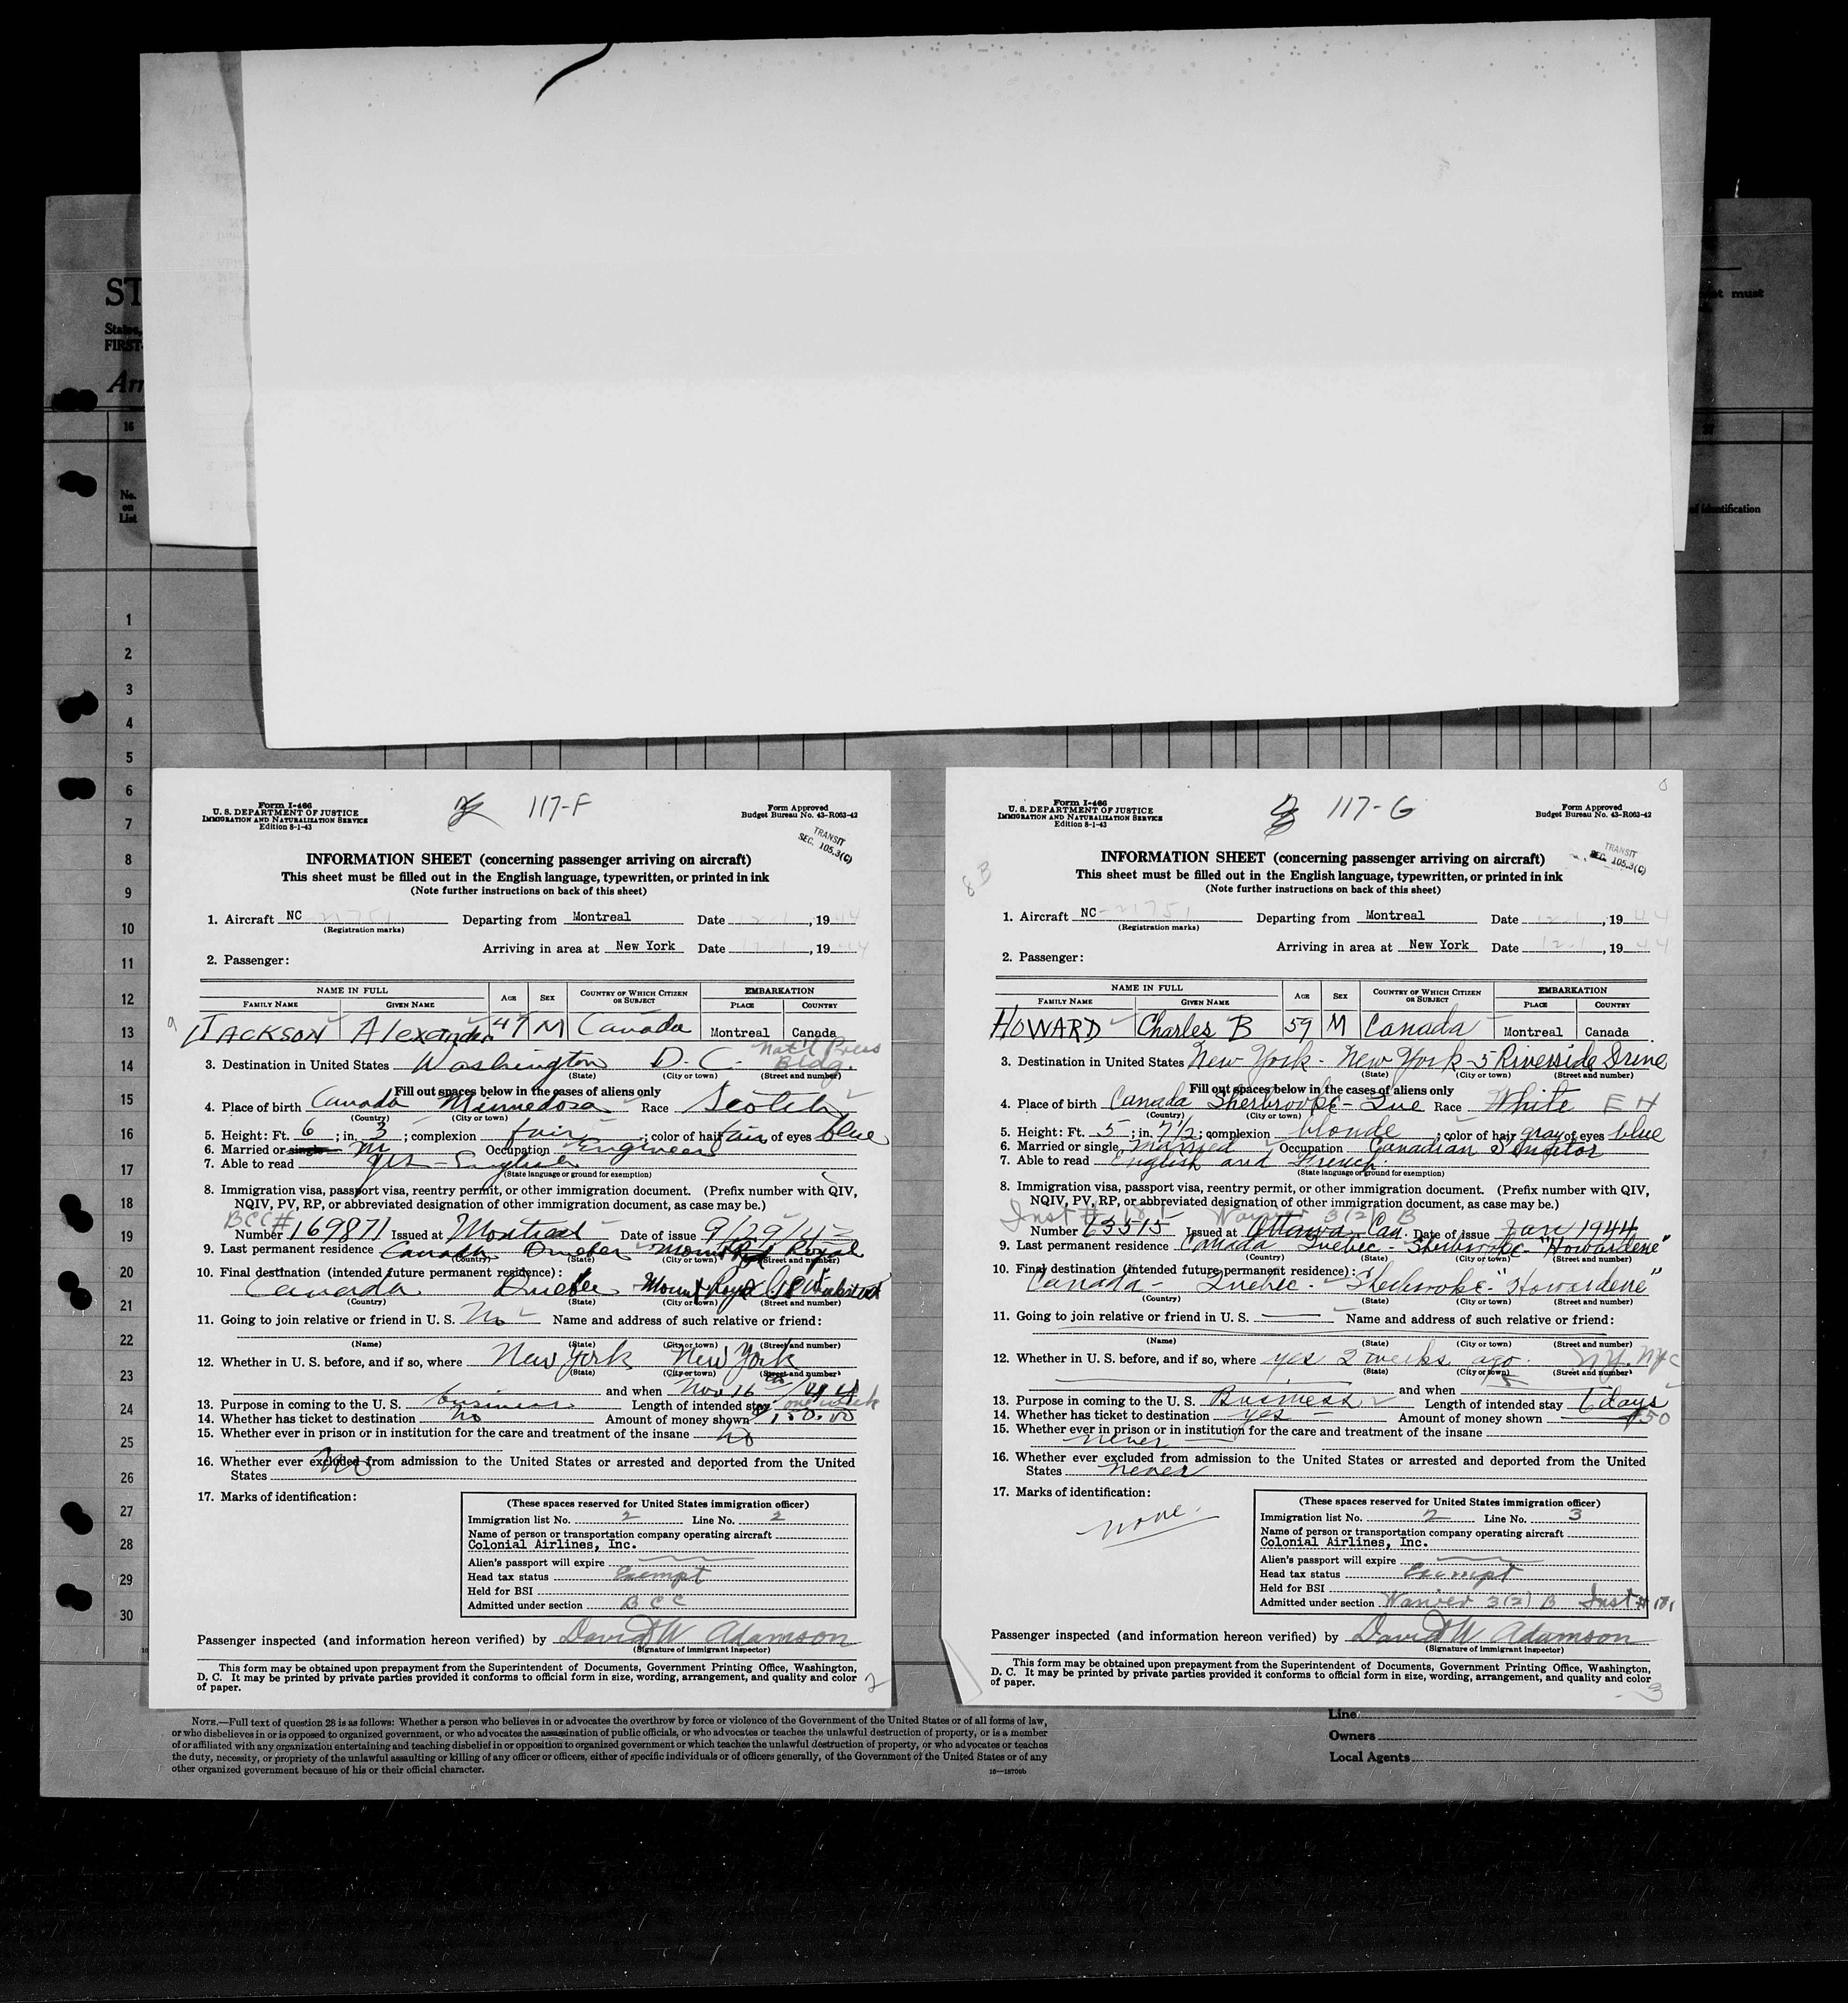 ST
States,
FIRST-
Arr
must
16
No.
on
List
of identification
1
2
3
4
5
6
7
8
9
10
11
12
13
14
15
16
17
18
19
20
21
22
23
24
25
26
27
28
29
30
Form I-466
U. S. DEPARTMENT OF JUSTICE
IMMIGRATION AND NATURALIZATION SERVICE
Edition 8-1-43
117-F
Form Approved
Budget Bureau No. 43-R063-42
TRANSIT
SEC. 105.3(C)
INFORMATION SHEET (concerning passenger arriving on aircraft)
This sheet must be filled out in the English language, typewritten, or printed in ink
(Note further instructions on back of this sheet)
1. Aircraft NC 21751 Departing from Montreal Date 12-1, 1944
(Registration marks)
Arriving in area at New York Date 12-1, 1944
2. Passenger:
NAME IN FULL AGE SEX COUNTRY OF WHICH CITIZEN OR SUBJECT EMBARKATION
FAMILY NAME GIVEN NAME PLACE COUNTRY
JACKSON Alexander 47 M Canada Montreal Canada
3. Destination in United States Washington D. C. Nat'l Press Bldg.
(State) (City or town) (Street and number)
Fill out spaces below in the cases of aliens only
4. Place of birth Canada Minnedosa Race Scotch
(Country) (City or town)
5. Height: Ft. 6; in. 3; complexion fair; color of hair fair of eyes blue
6. Married or single M Occupation Engineer
7. Able to read yes - English
(State language or ground for exemption)
8. Immigration visa, passport visa, reentry permit, or other immigration document. (Prefix number with QIV,
NQIV, PV, RP, or abbreviated designation of other immigration document, as case may be.)
BCC#
Number 169871 Issued at Montreal Date of issue 9/29/43
9. Last permanent residence Canada Quebec Mount Royal
(Country) (State) (City or town) (Street and number)
10. Final destination (intended future permanent residence):
Canada Quebec Mount Royal
(Country) (State) (City or town) (Street and number)
11. Going to join relative or friend in U. S. No Name and address of such relative or friend:
(Name) (State) (City or town) (Street and number)
12. Whether in U. S. before, and if so, where New York New York
(State) (City or town) (Street and number)
and when Nov 16th/44
13. Purpose in coming to the U. S. business Length of intended stay one week
14. Whether has ticket to destination no Amount of money shown $150.00
15. Whether ever in prison or in institution for the care and treatment of the insane no
16. Whether ever excluded from admission to the United States or arrested and deported from the United
States no
17. Marks of identification:
(These spaces reserved for United States immigration officer)
Immigration list No. 2 Line No. 2
Name of person or transportation company operating aircraft
Colonial Airlines, Inc.
Alien's passport will expire
Head tax status Exempt
Held for BSI
Admitted under section BCC
Passenger inspected (and information hereon verified) by David W Adamson
(Signature of immigrant inspector)
This form may be obtained upon prepayment from the Superintendent of Documents, Government Printing Office, Washington,
D. C. It may be printed by private parties provided it conforms to official form in size, wording, arrangement, and quality and color
of paper.
2
Form I-466
U. S. DEPARTMENT OF JUSTICE
IMMIGRATION AND NATURALIZATION SERVICE
Edition 8-1-43
117-G
Form Approved
Budget Bureau No. 43-R063-42
TRANSIT
SEC. 105.3(C)
8B
INFORMATION SHEET (concerning passenger arriving on aircraft)
This sheet must be filled out in the English language, typewritten, or printed in ink
(Note further instructions on back of this sheet)
1. Aircraft NC-21751 Departing from Montreal Date 12-1, 1944
(Registration marks)
Arriving in area at New York Date 12-1, 1944
2. Passenger:
NAME IN FULL AGE SEX COUNTRY OF WHICH CITIZEN OR SUBJECT EMBARKATION
FAMILY NAME GIVEN NAME PLACE COUNTRY
HOWARD Charles B 59 M Canada Montreal Canada
3. Destination in United States New York - New York - 5 Riverside Drive
(State) (City or town) (Street and number)
Fill out spaces below in the cases of aliens only
4. Place of birth Canada Sherbrooke - Que Race White EH
(Country) (City or town)
5. Height: Ft. 5; in. 7 1/2; complexion blonde; color of hair gray of eyes blue
6. Married or single married Occupation Canadian Senator
7. Able to read English and French
(State language or ground for exemption)
8. Immigration visa, passport visa, reentry permit, or other immigration document. (Prefix number with QIV,
NQIV, PV, RP, or abbreviated designation of other immigration document, as case may be.)
Inst # 181 Waiver 3(2) B
Number 63515 Issued at Ottawa - Can. Date of issue Jan 1944
9. Last permanent residence Canada Quebec - Sherbrooke - "Howardene"
(Country) (State) (City or town) (Street and number)
10. Final destination (intended future permanent residence):
Canada - Quebec - Sherbrooke - "Howardene"
(Country) (State) (City or town) (Street and number)
11. Going to join relative or friend in U. S. Name and address of such relative or friend:
(Name) (State) (City or town) (Street and number)
12. Whether in U. S. before, and if so, where yes 2 weeks ago. NY. NYC
(State) (City or town) (Street and number)
and when
13. Purpose in coming to the U. S. Business Length of intended stay 6 days
14. Whether has ticket to destination yes Amount of money shown $50
15. Whether ever in prison or in institution for the care and treatment of the insane
never
16. Whether ever excluded from admission to the United States or arrested and deported from the United
States never
17. Marks of identification:
none.
(These spaces reserved for United States immigration officer)
Immigration list No. 2 Line No. 3
Name of person or transportation company operating aircraft
Colonial Airlines, Inc.
Alien's passport will expire
Head tax status Exempt
Held for BSI
Admitted under section Waiver 3(2) B Inst # 181
Passenger inspected (and information hereon verified) by David W Adamson
(Signature of immigrant inspector)
This form may be obtained upon prepayment from the Superintendent of Documents, Government Printing Office, Washington,
D. C. It may be printed by private parties provided it conforms to official form in size, wording, arrangement, and quality and color
of paper.
3
NOTE.—Full text of question 28 is as follows: Whether a person who believes in or advocates the overthrow by force or violence of the Government of the United States or of all forms of law,
or who disbelieves in or is opposed to organized government, or who advocates the assassination of public officials, or who advocates or teaches the unlawful destruction of property, or is a member
of or affiliated with any organization entertaining and teaching disbelief in or opposition to organized government or which teaches the unlawful destruction of property, or who advocates or teaches
the duty, necessity, or propriety of the unlawful assaulting or killing of any officer or officers, either of specific individuals or of officers generally, of the Government of the United States or of any
other organized government because of his or their official character.
16—18700b
Line
Owners
Local Agents